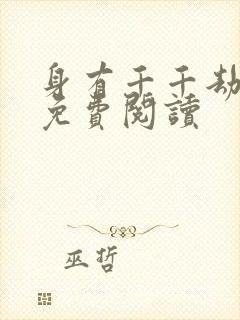 身有千千劫
免費閱讀
巫哲